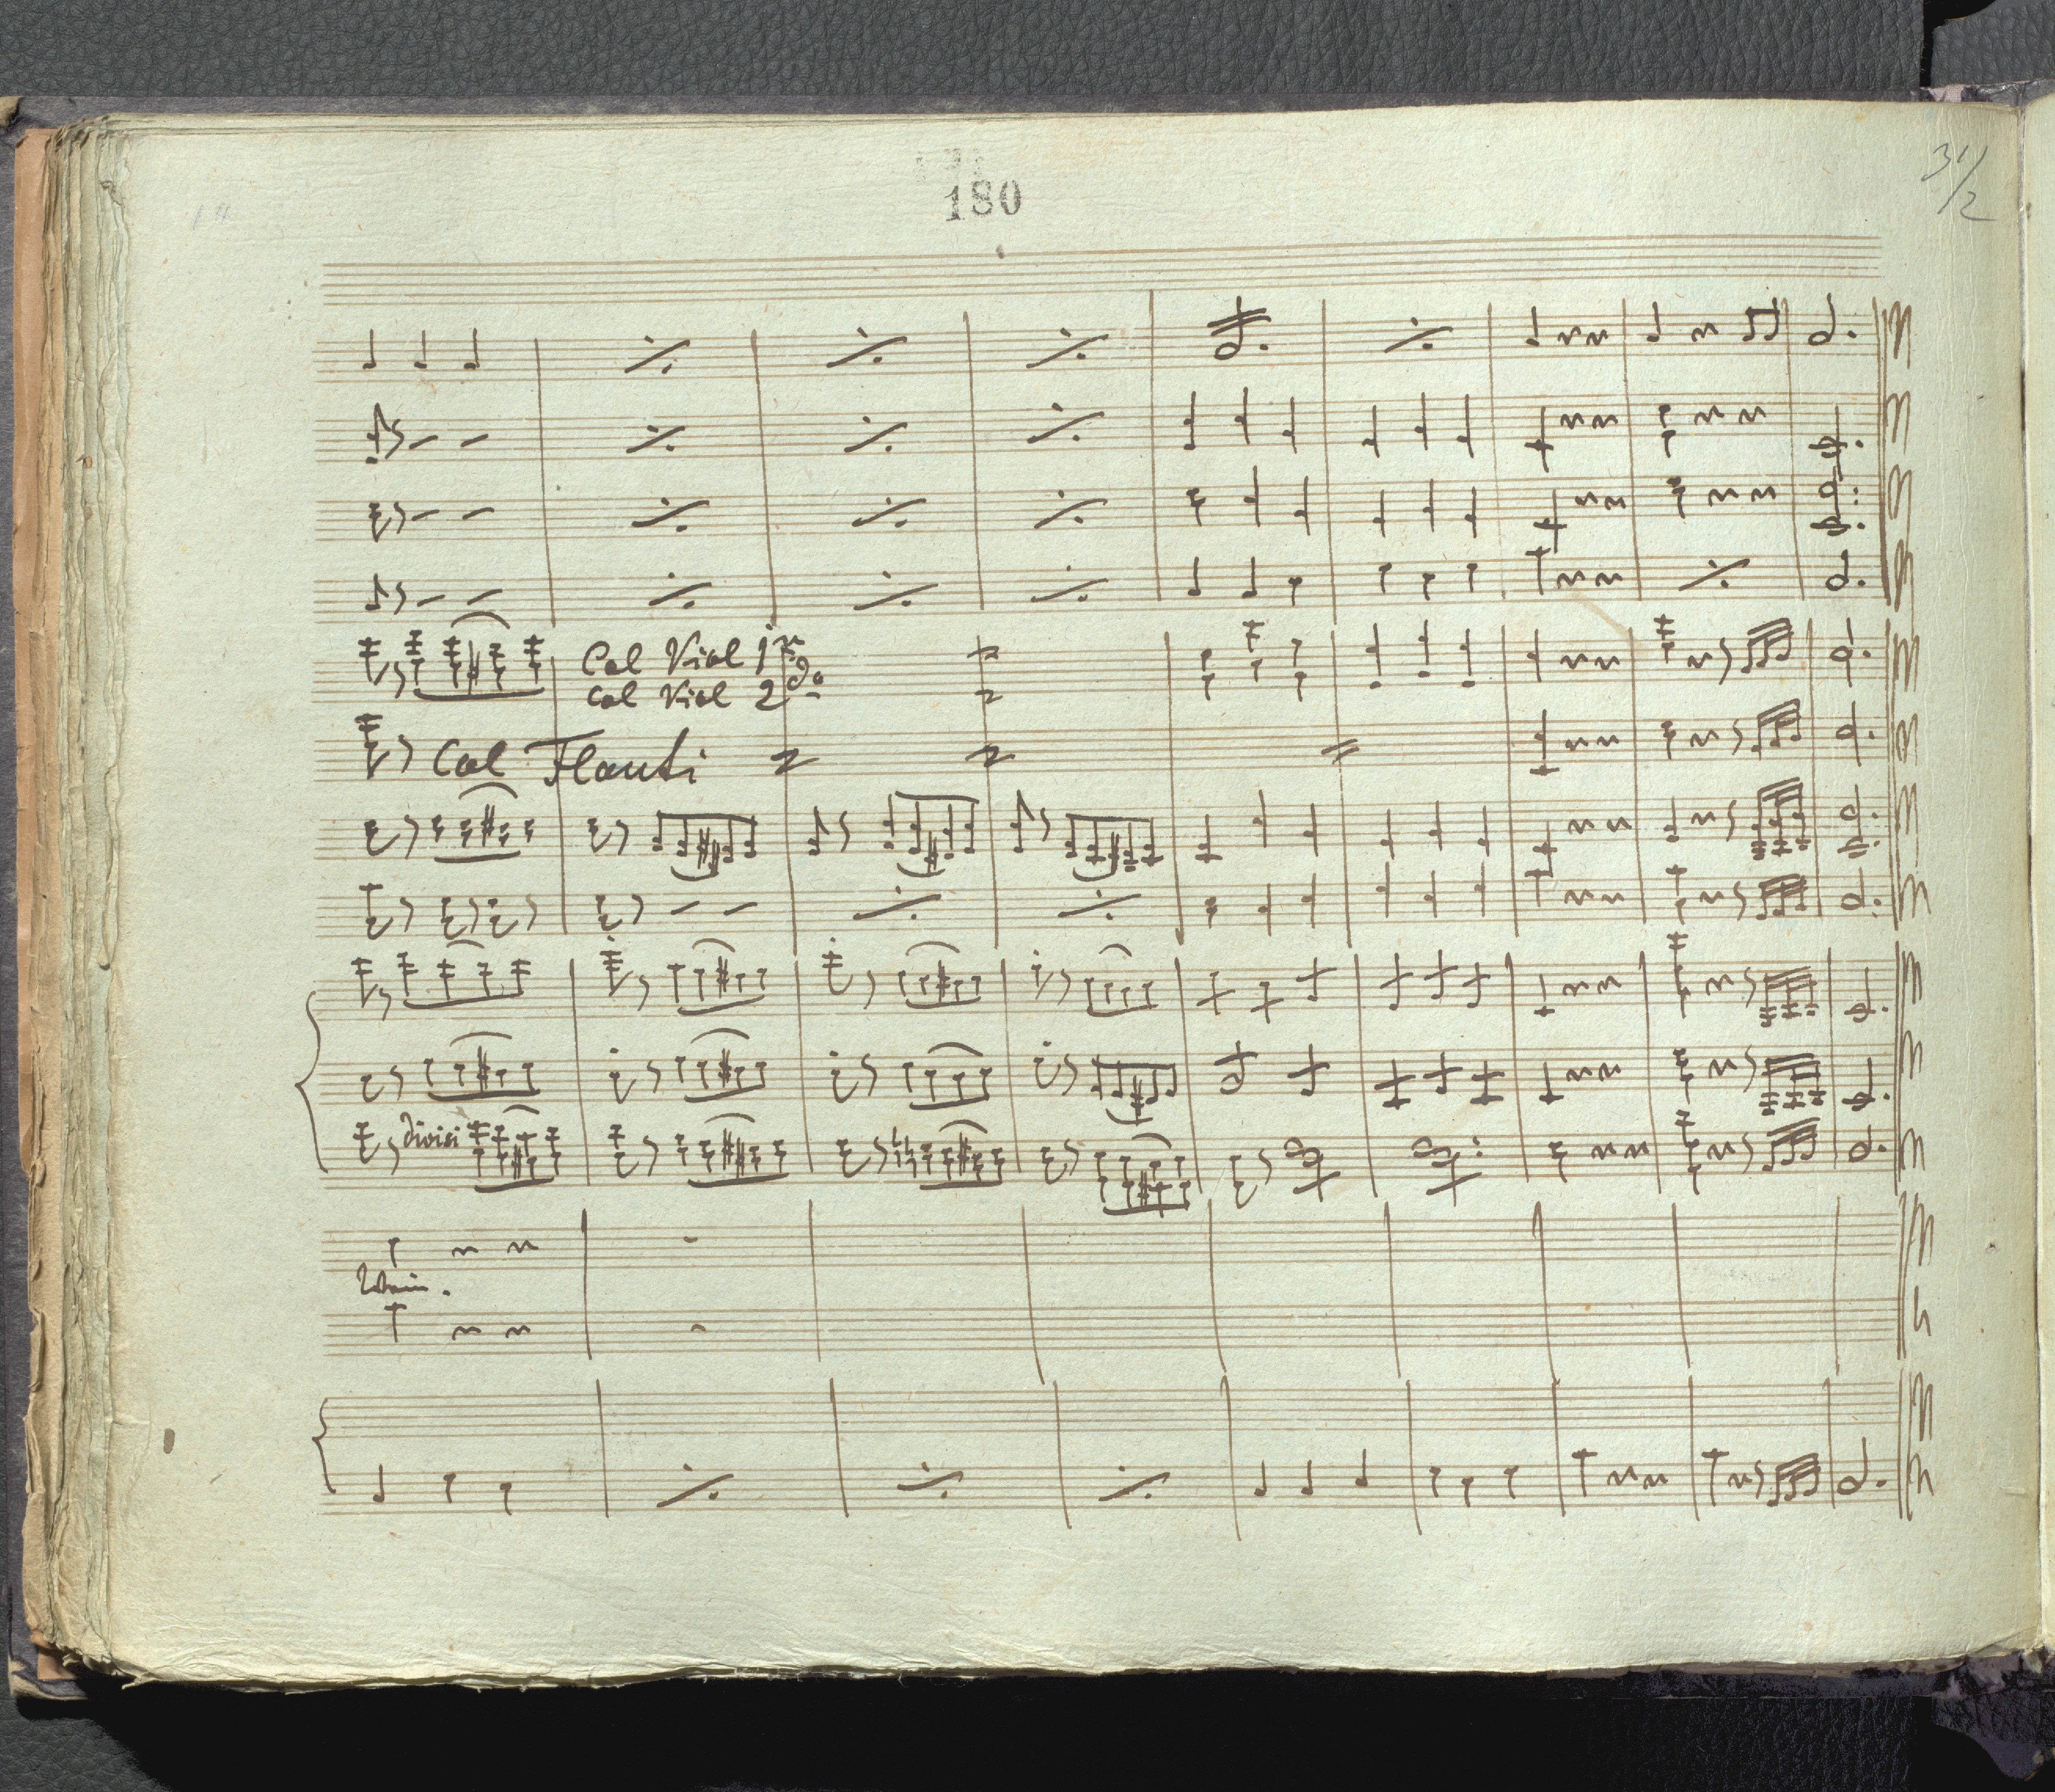 180
31/2
Col Viol 1mo
Col Viol 2do
Col Flauti
divisi